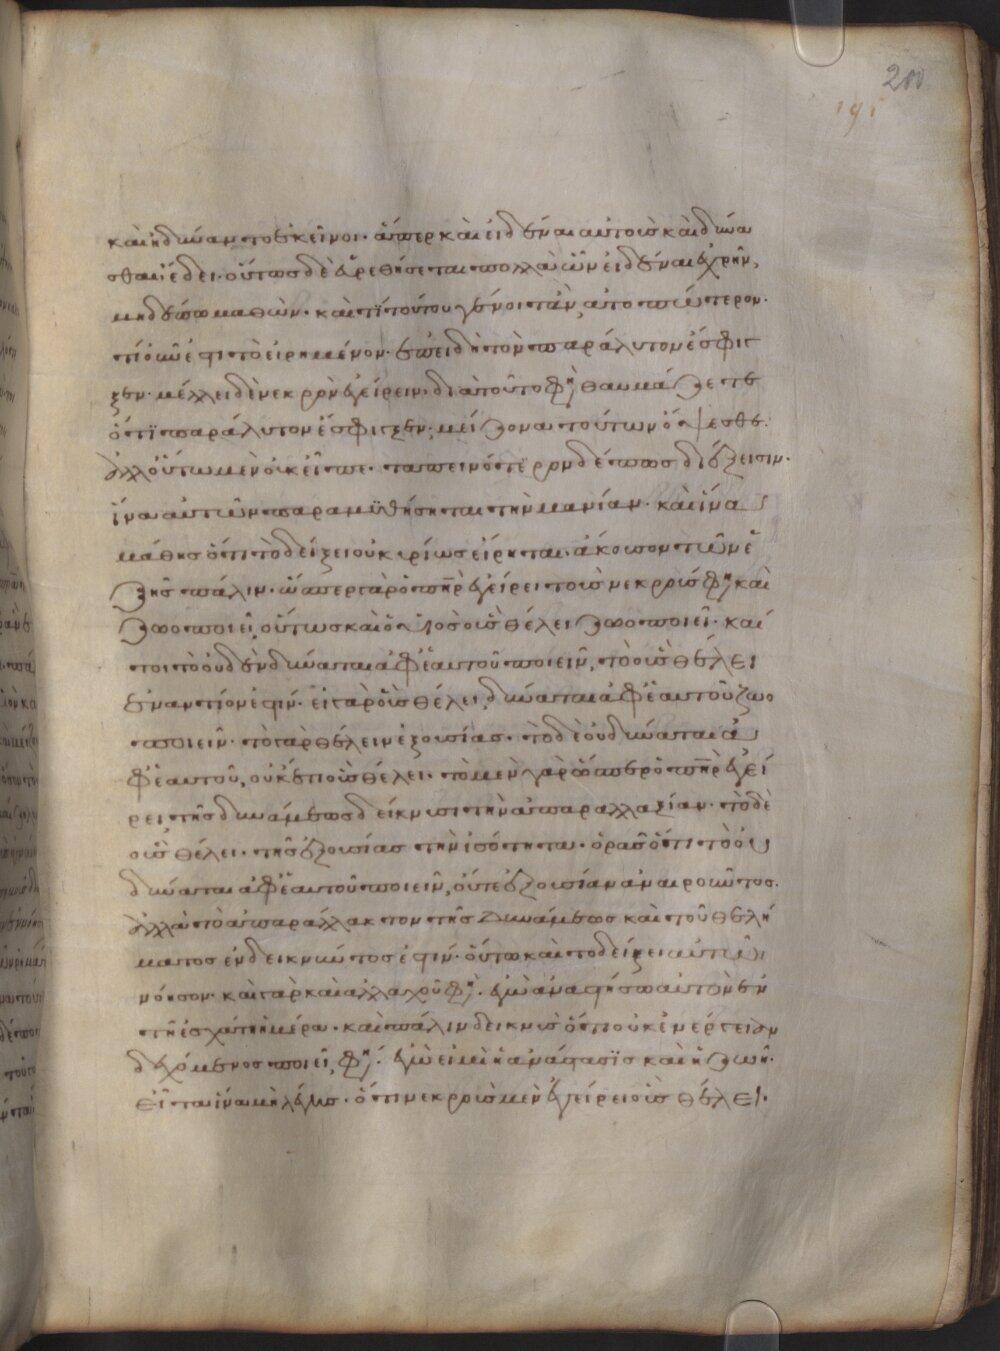 200
191
καὶ ἠδύναντο ἐκεῖνοι· ἅπερ καὶ εἰδέναι αὐτοὺς καὶ δύνα
σθαι ἔδει· οὕτως δὲ εὑρεθήσεται πολλὰ ὧν εἰδέναι ἐχρῆν,
μηδέπω μαθών· καὶ τί τούτου γένοιτ' ἂν ἀτοπώτερον·
τί οὖν ἐστι τὸ εἰρημένον· ἐπειδὴ τὸν παράλυτον ἔσφιγ
ξεν· μέλλει δὲ νεκρὸν ἐγείρειν· διὰ τοῦτό φη θαυμάζετε
ὅτι παράλυτον ἔσφιγξεν; μείζονα τούτων ὄψεσθε·
ἀλλ' οὕτω μὲν οὐκ εἶπε· ταπεινότερον δέ πως διέξεισιν·
ἵνα αὐτῶν παραμυθήσηται τὴν μανίαν· καὶ ἵνα
μάθης ὅτι τὸ δείξει οὐ κυρίως εἴρηται, ἄκουσον τῶν ἑ
ξῆς πάλιν· ὥσπερ γὰρ ὁ πηρ ἐγείρει τοὺς νεκρούς φη καὶ
ζωοποιεῖ, οὕτως καὶ ὁ υἱος οὓς θέλει ζωοποιεῖ· καί
τοι τὸ οὐδὲν δύναται ἀφ' ἑαυτοῦ ποιεῖν, τὸ οὓς θέλει
ἐναντίον ἐστίν· εἰ γὰρ οὓς θέλει, δύναται ἀφ' ἑαυτοῦ ζωο
ποιεῖν· τὸ γὰρ θέλειν ἐξουσίας· τὸ δὲ οὐ δύναται ἀ
φ' ἑαυτοῦ, οὐκέτι οὓς θέλει· τὸ μὲν γὰρ ὥσπερ ὁ πηρ ἐγεί
ρει τῆς δυνάμεως δείκνυσι τὴν ἀπαραλλαξίαν· τὸ δὲ
οὓς θέλει· τῆς ἐξουσίας τὴν ἰσότητα· ὁρᾶς ὅτι τὸ οὐ
δύναται ἀφ' ἑαυτοῦ ποιεῖν, οὔτε ἐξουσίαν ἀναιροῦντος·
ἀλλὰ τὸ ἀπαράλλακτον τῆς δυνάμεως καὶ τοῦ θελή
ματος ἐνδεικνύντος ἐστίν· οὕτω καὶ τὸ δείξει αὐτῶ
νόησον· καὶ γὰρ καὶ ἀλλαχοῦ φη· ἐγὼ ἀναστήσω αὐτὸν ἐν
τῆ ἐσχάτη ἡμέρα· καὶ πάλιν δεικνὺς ὅτι οὐκ ἐνέργειαν
δεχόμενος ποιεῖ, φη· ἐγώ εἰμι ἡ ἀνάστασις καὶ ἡ ζωή·
Εἶτα ἵνα μὴ λέγης· ὅτι νεκροὺς μὲν ἐγείρει οὓς θέλει·